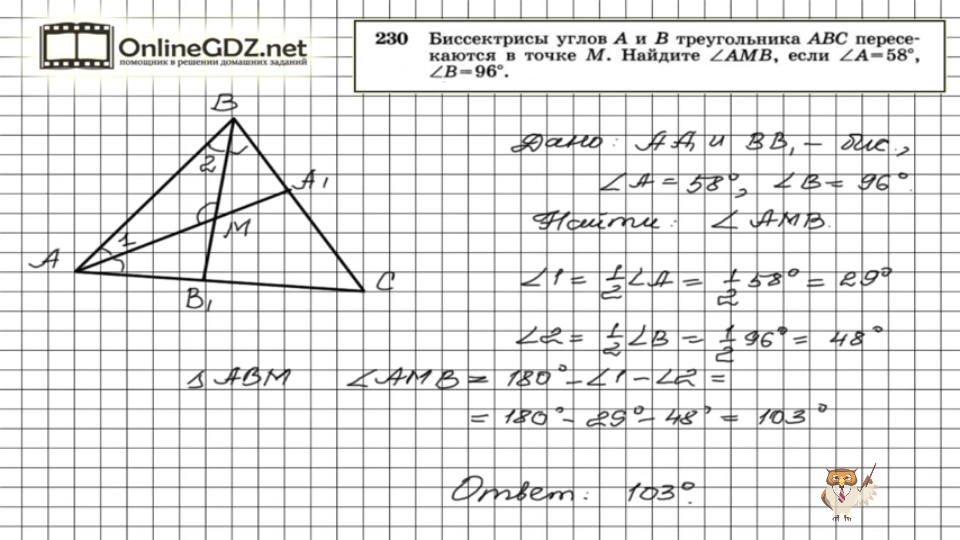 OnlineGDZ.net
помощник в решении домашних заданий
230 Биссектрисы углов A и B треугольника ABC пересе-
каются в точке M. Найдите ∠AMB, если ∠A=58°,
∠B=96°.
B
2
A₁
1
M
A
B₁
C
Дано: AA₁ и BB₁ – бис.,
∠A = 58°, ∠B = 96°.
Найти: ∠AMB.
∠1 = 1/2 ∠A = 1/2 58° = 29°
∠2 = 1/2 ∠B = 1/2 96° = 48°
Δ ABM ∠AMB = 180° – ∠1 – ∠2 =
= 180° – 29° – 48° = 103°
Ответ: 103°.